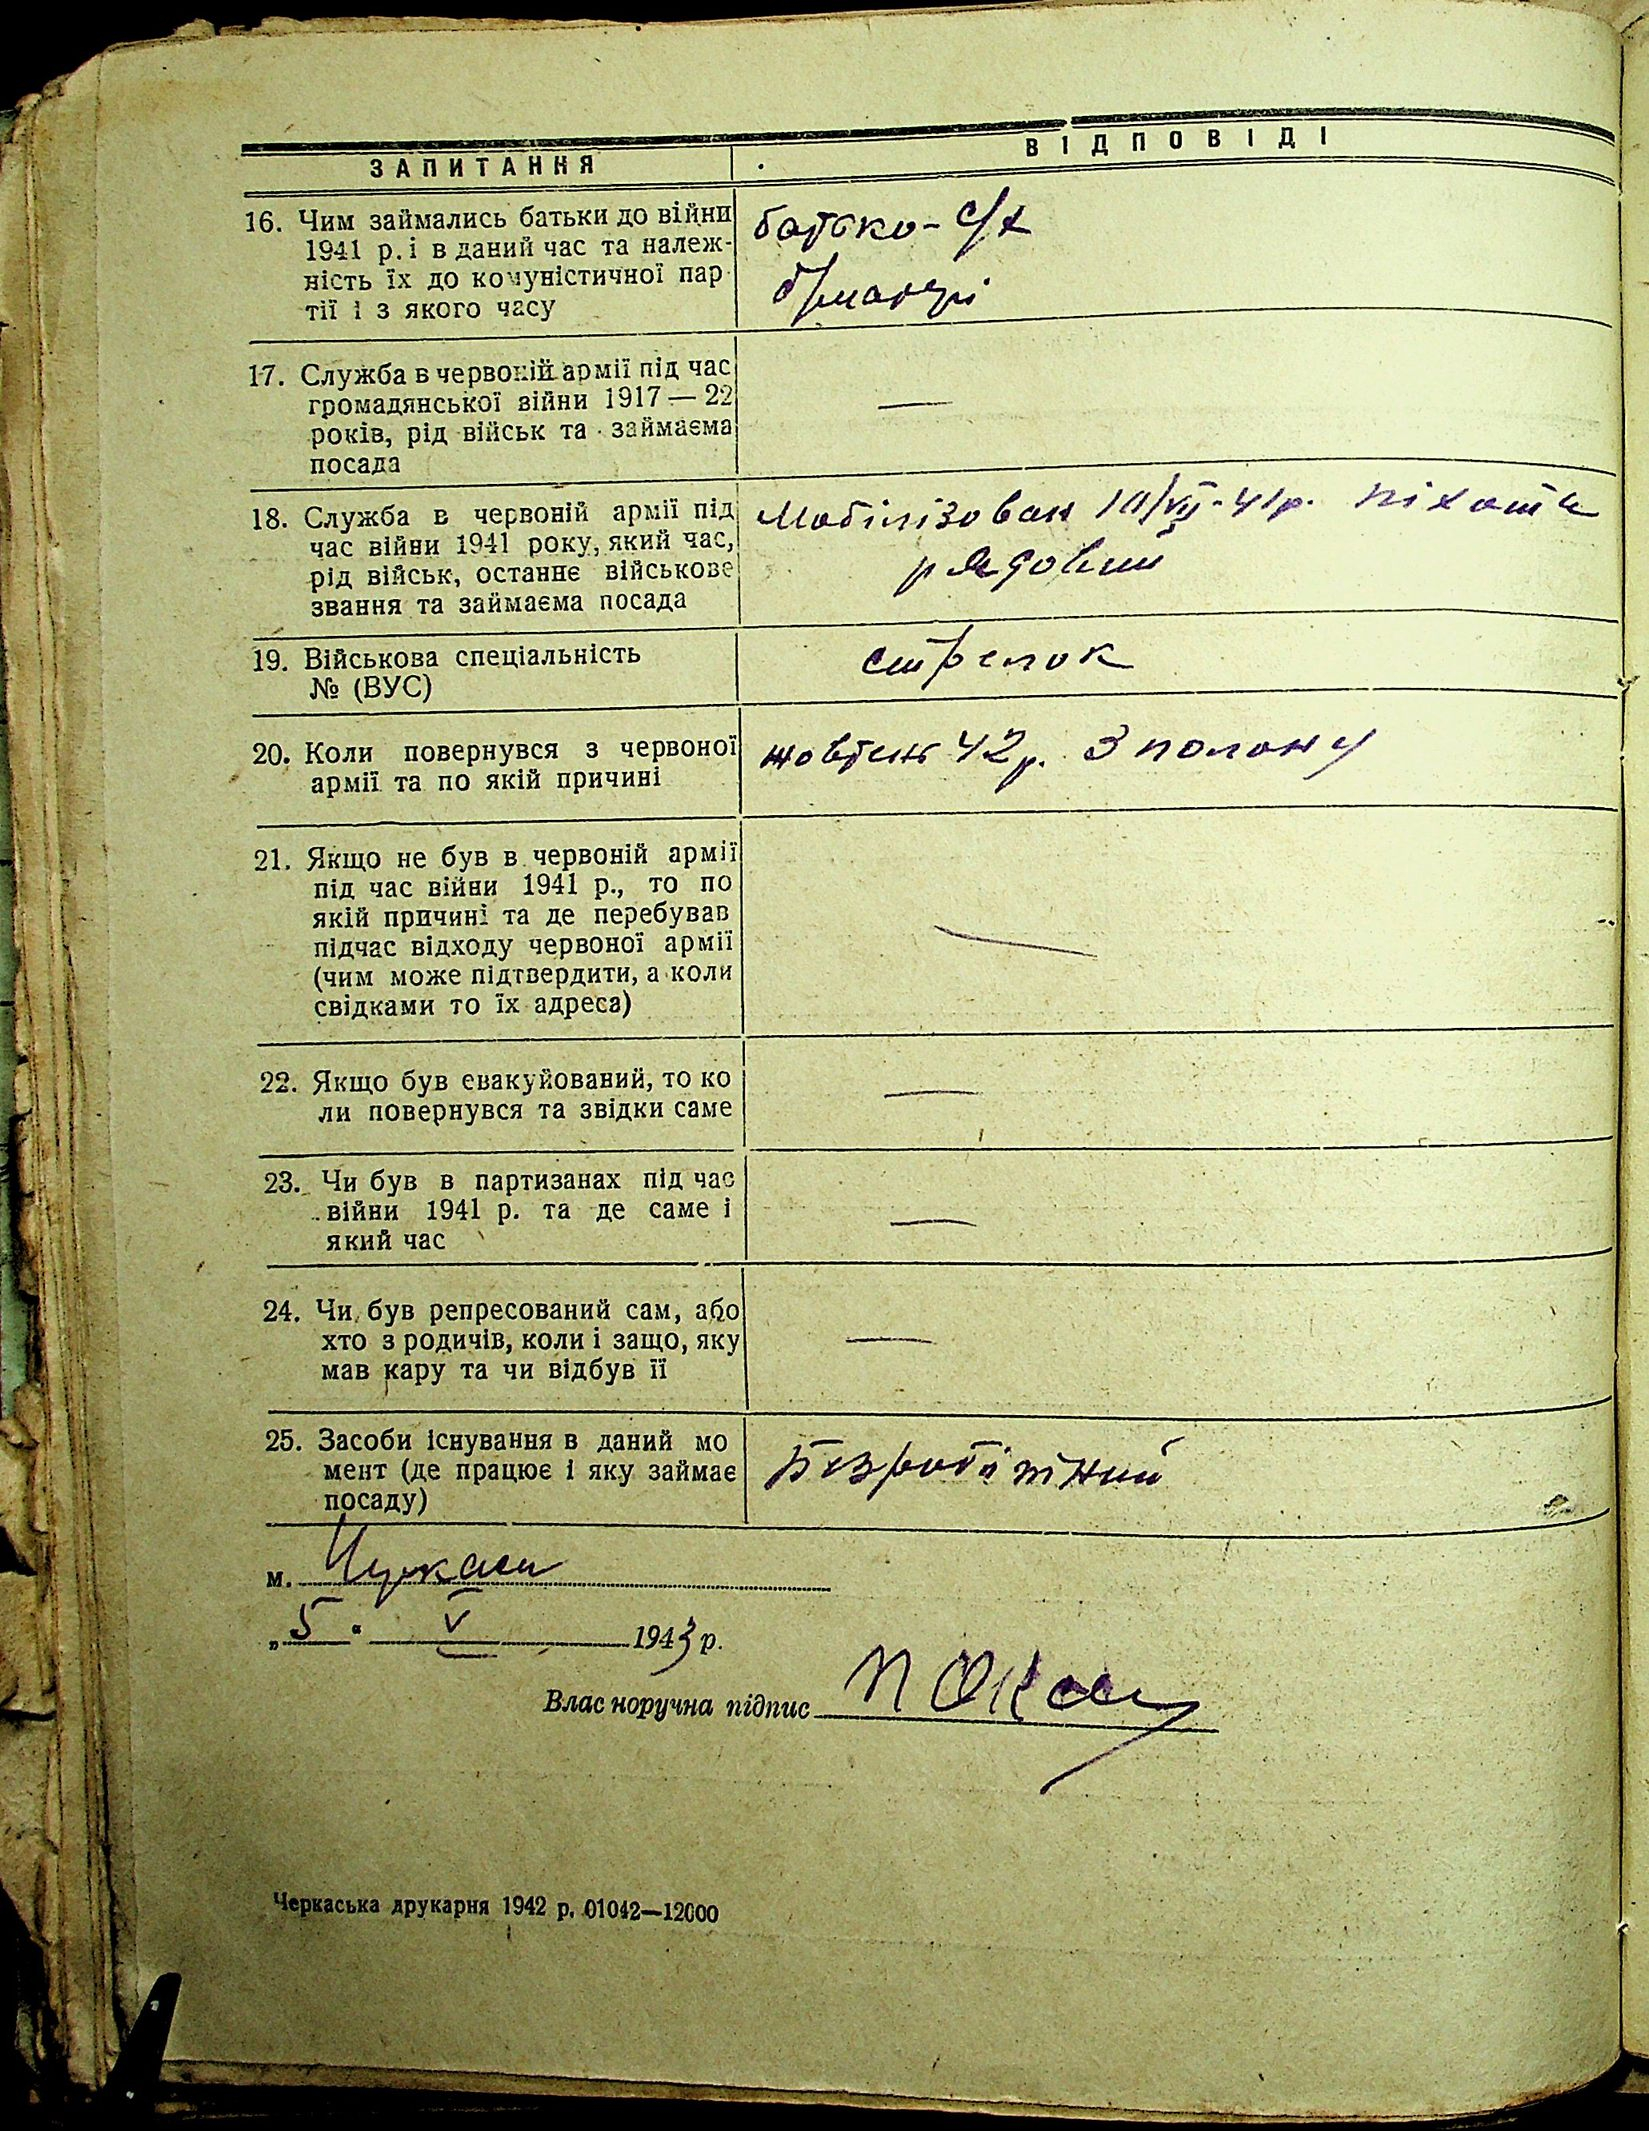 ЗАПИТАННЯ
ВІДПОВІДІ
16. Чим займались батьки до війни
1941 р. і в даний час та належ-
ність їх до комуністичної пар
тії і з якого часу
батько - с/х
17. Служба в червоній армії під час
громадянської війни 1917 — 22
років, рід військ та займаєма
посада
—
18. Служба в червоній армії під
час війни 1941 року, який час,
рід військ, останнє військове
звання та займаєма посада
Мобілізован 41р. піхота
рядовий
19. Військова спеціальність
№ (ВУС)
стрелок
20. Коли повернувся з червоної
армії та по якій причині
жовтень 42 р. З полону
21. Якщо не був в червоній армії
під час війни 1941 р., то по
якій причині та де перебував
підчас відходу червоної армії
(чим може підтвердити, а коли
свідками то їх адреса)
—
22. Якщо був евакуйований, то ко
ли повернувся та звідки саме
—
23. Чи був в партизанах під час
війни 1941 р. та де саме і
який час
—
24. Чи був репресований сам, або
хто з родичів, коли і защо, яку
мав кару та чи відбув її
—
25. Засоби існування в даний мо
мент (де працює і яку займає
посаду)
Безробітний
м. Черкаси
„5“ V 1943 р.
Влас норучна підпис
Черкаська друкарня 1942 р. 01042—12000